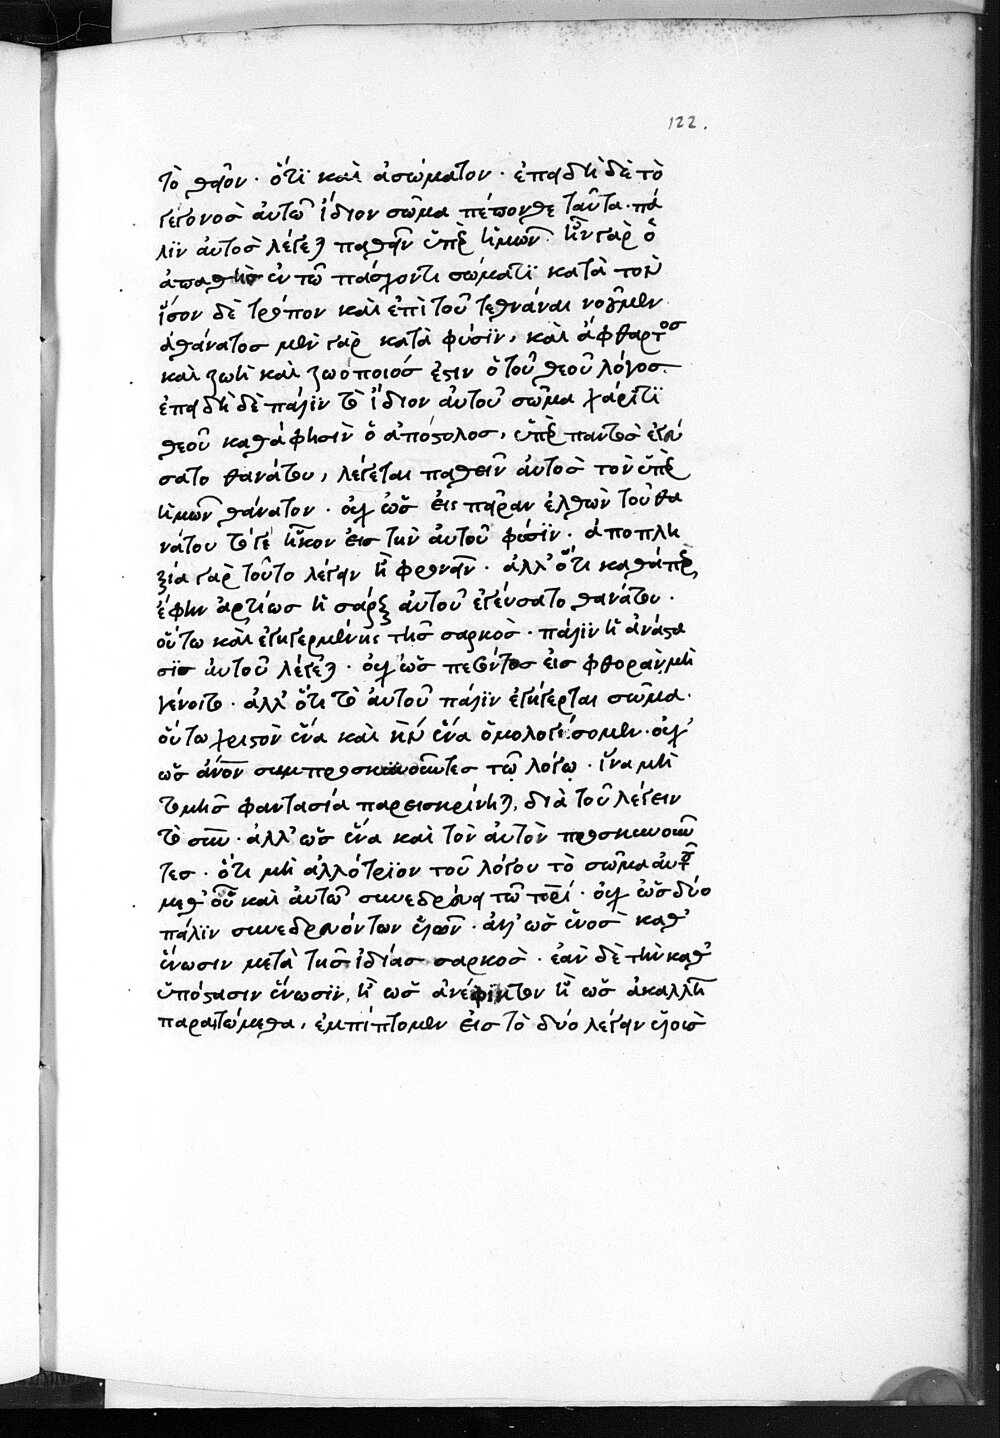 122.
τὸ θεῖον· ὅτϊ καὶ ἀσώματον· ἐπειδὴ δὲ τὸ
γεγονοσ ἀυτῶ ἴδιον σῶμα πέπονθε ταῦτα· πά
λϊν ἀυτοσ λέγεται παθεῖν ὑπὲρ ἡμῶν· ἦν γαρ ὁ
ἀπαθὴσ ἐν τῶ πάσχοντι σώματϊ κατὰ τον
ἴσον δὲ τρόπον καὶ ἐπὶ τοῦ τεθνάναι νοοῦμεν·
ἀθάνατοσ μεν γὰρ κατὰ φύσϊν, καὶ ἄφθαρτοσ
καὶ ζωὴ καὶ ζωὁποιόσ ἐστιν ὁ τοῦ θεοῦ λόγοσ·
ἐπειδὴ δὲ πάλϊν τὸ ἴδιον ἀυτοῦ σῶμα χάρϊτϊ
θεοῦ καθά φησὶν ὁ ἀπόστολοσ, ὑπὲρ παντὸσ ἐγεύ
σατο θανάτου, λέγεται παθεῖν ἀυτοσ τὸν ὑπὲρ
ἡμῶν θάνατον· οὐχ ὡσ ἐισ πεῖραν ἐλθὼν τοῦ θα
νάτου τό γε ἧκον ἐισ τὴν ἀυτοῦ φύσϊν· ἀποπλη
ξία γὰρ τοῦτο λέγειν ἢ φρονεῖν· ἀλλ' ὅτι καθάπερ
ἔφην ἀρτίωσ ἡ σάρξ ἀυτοῦ ἐγεύσατο θανάτου·
οὕτω καὶ ἐγηγερμένησ τῆσ σαρκὸσ· πάλϊν ἡ ἀνάστα
σϊσ ἀυτοῦ λέγεται· οὐχ ὡσ πεσόντοσ ἐισ φθορὰν, μὴ
γένοιτο· ἀλλ' ὅτι τὸ ἀυτοῦ πάλϊν ἐγήγερται σῶμα·
οὕτω χριστὸν ἕνα καὶ κν ἕνα ὁμολογήσομεν· οὐχ
ὡσ ανον συμπροσκυνοῦντεσ τῶ λόγω· ἵνα μὴ
τομῆσ φαντασία παρεισκρίνηται, διὰ τοῦ λέγειν
τὸ συν· ἀλλ' ὡσ ἕνα καὶ τὸν ἀυτὸν προσκυνοῦν
τεσ· ὅτι μὴ ἀλλότρϊον τοῦ λόγου τὸ σῶμα ἀυτοῦ
μεθ' οὗ καὶ ἀυτῶ συνεδρεύει τῶ πρί· οὐχ ὡσ δύο
πάλϊν συνεδρευόντων ὑιῶν· ἀλλ' ὡσ ἑνοσ καθ'
ἕνωσιν μετὰ τῆσ ἰδίασ σαρκοσ· ἐὰν δὲ τὴν καθ'
ὑπόστασιν ἕνωσϊν, ἢ ὡσ ἀνέφικτον ἢ ὡσ ἀκαλλῆ
παραιτώμεθα, ἐμπίπτομεν ἐισ τὸ δύο λέγειν ὑιοὺσ